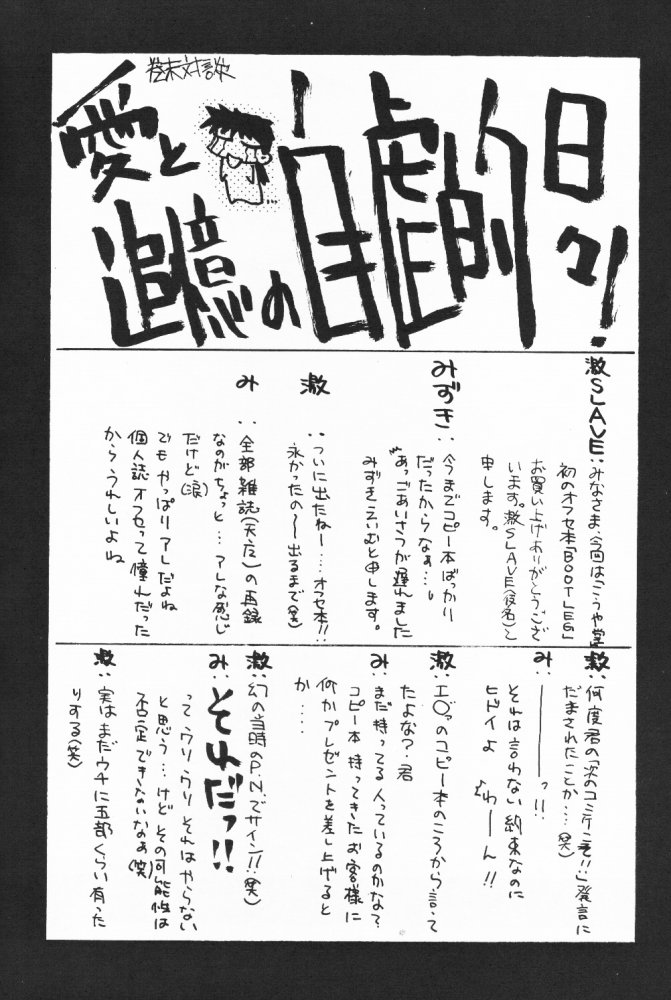 巻末対談
愛と
追憶の
自虐的
日々!
激SLAVE:みなさま、今回はこうや堂
初のオフセ本「BOOTLEG」
お買い上げありがとうござ
います。激SLAVE(仮名)と
申します。
みずき:今までコピー本ばっかり
だったからなぁ…。
あっごあいさつが遅れました
みずきえいむと申します。
激:ついに出たねー……オフセ本!!
永かったの〜出るまで(笑)
み:全部雑誌(天〇)の再録
なのがちょっと…アレな感じ
だけど(涙)
でもやっぱりアレだよね
個人誌オフセって憧れだった
からうれしいよね
激:何度君の「次のコミケこそ!!」発言に
だまされたことか……(笑)
み:――――っ!!
それは言わない約束なのに
ヒドイよ わーん!!
激:エ〇っのコピー本のころから言って
たよな?君
み:まだ持ってる人っているのかな?
コピー本持ってきたお客様に
何かプレゼントを差し上げると
か……
激:幻の当時のP.N.でサイン!!(笑)
み:それだっ!!
ってウソウソそれはやらない
と思う…けどその可能性は
否定できないなぁ(笑)
激:実はまだウチに五部くらい有った
りする(笑)